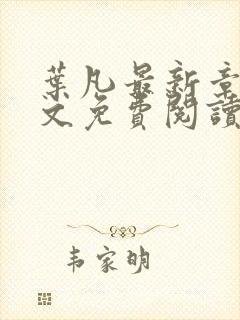 葉凡最新章
文免費閱讀
韦家明